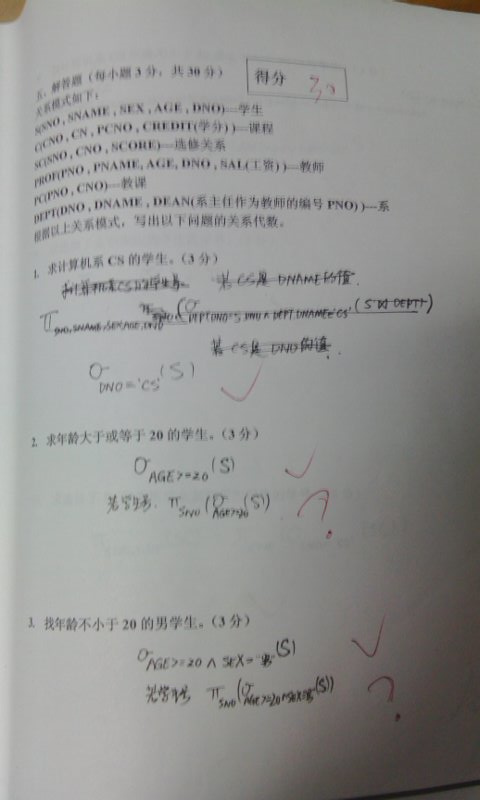 五、解答题（每小题3分，共30分）
得分 30
关系模式如下：
S(SNO, SNAME, SEX, AGE, DNO)—学生
C(CNO, CN, PCNO, CREDIT(学分))—课程
SC(SNO, CNO, SCORE)—选修关系
PROF(PNO, PNAME, AGE, DNO, SAL(工资))—教师
PC(PNO, CNO)—教课
DEPT(DNO, DNAME, DEAN(系主任作为教师的编号PNO))—系
根据以上关系模式，写出以下问题的关系代数。
1. 求计算机系CS的学生。（3分）
若CS是DNAME的值.
π SNO,SNAME,SEX,AGE,DNO (σ DEPT.DNO=S.DNO ∧ DEPT.DNAME='CS' (S⋈DEPT)
若CS是DNO的值.
σ DNO='CS' (S)
2. 求年龄大于或等于20的学生。（3分）
σ AGE>=20 (S)
若学号. π SNO (σ AGE>=20 (S))
?
3. 找年龄不小于20的男学生。（3分）
σ AGE>=20 ∧ SEX='男' (S)
若学号 π SNO (σ AGE>=20∧SEX=男 (S))
?